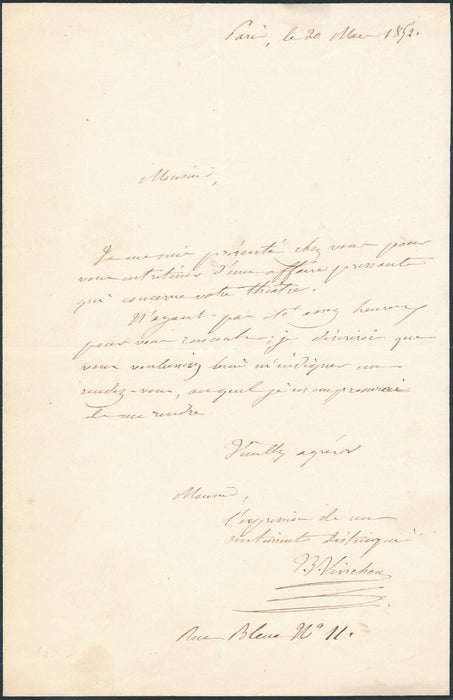 Paris, le 20 Mai 1852.
Monsieur,
Je me suis présenté chez vous pour
vous entretenir d'une affaire pressante
qui concerne votre théâtre.
N'ayant pas été assez heureux
pour vous rencontrer, je désirerai que
vous voulussiez bien m'indiquer un
rendez-vous, auquel je m'empresserai
de me rendre
Veuillez agréer
Monsieur,
l'expression de mes
sentiments distingués
Rue Bleue No 11.